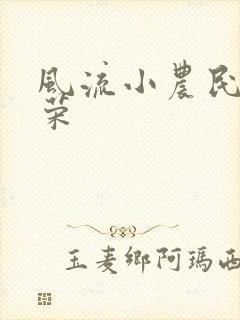 風流小農民
荣
玉麦鄉阿瑪西